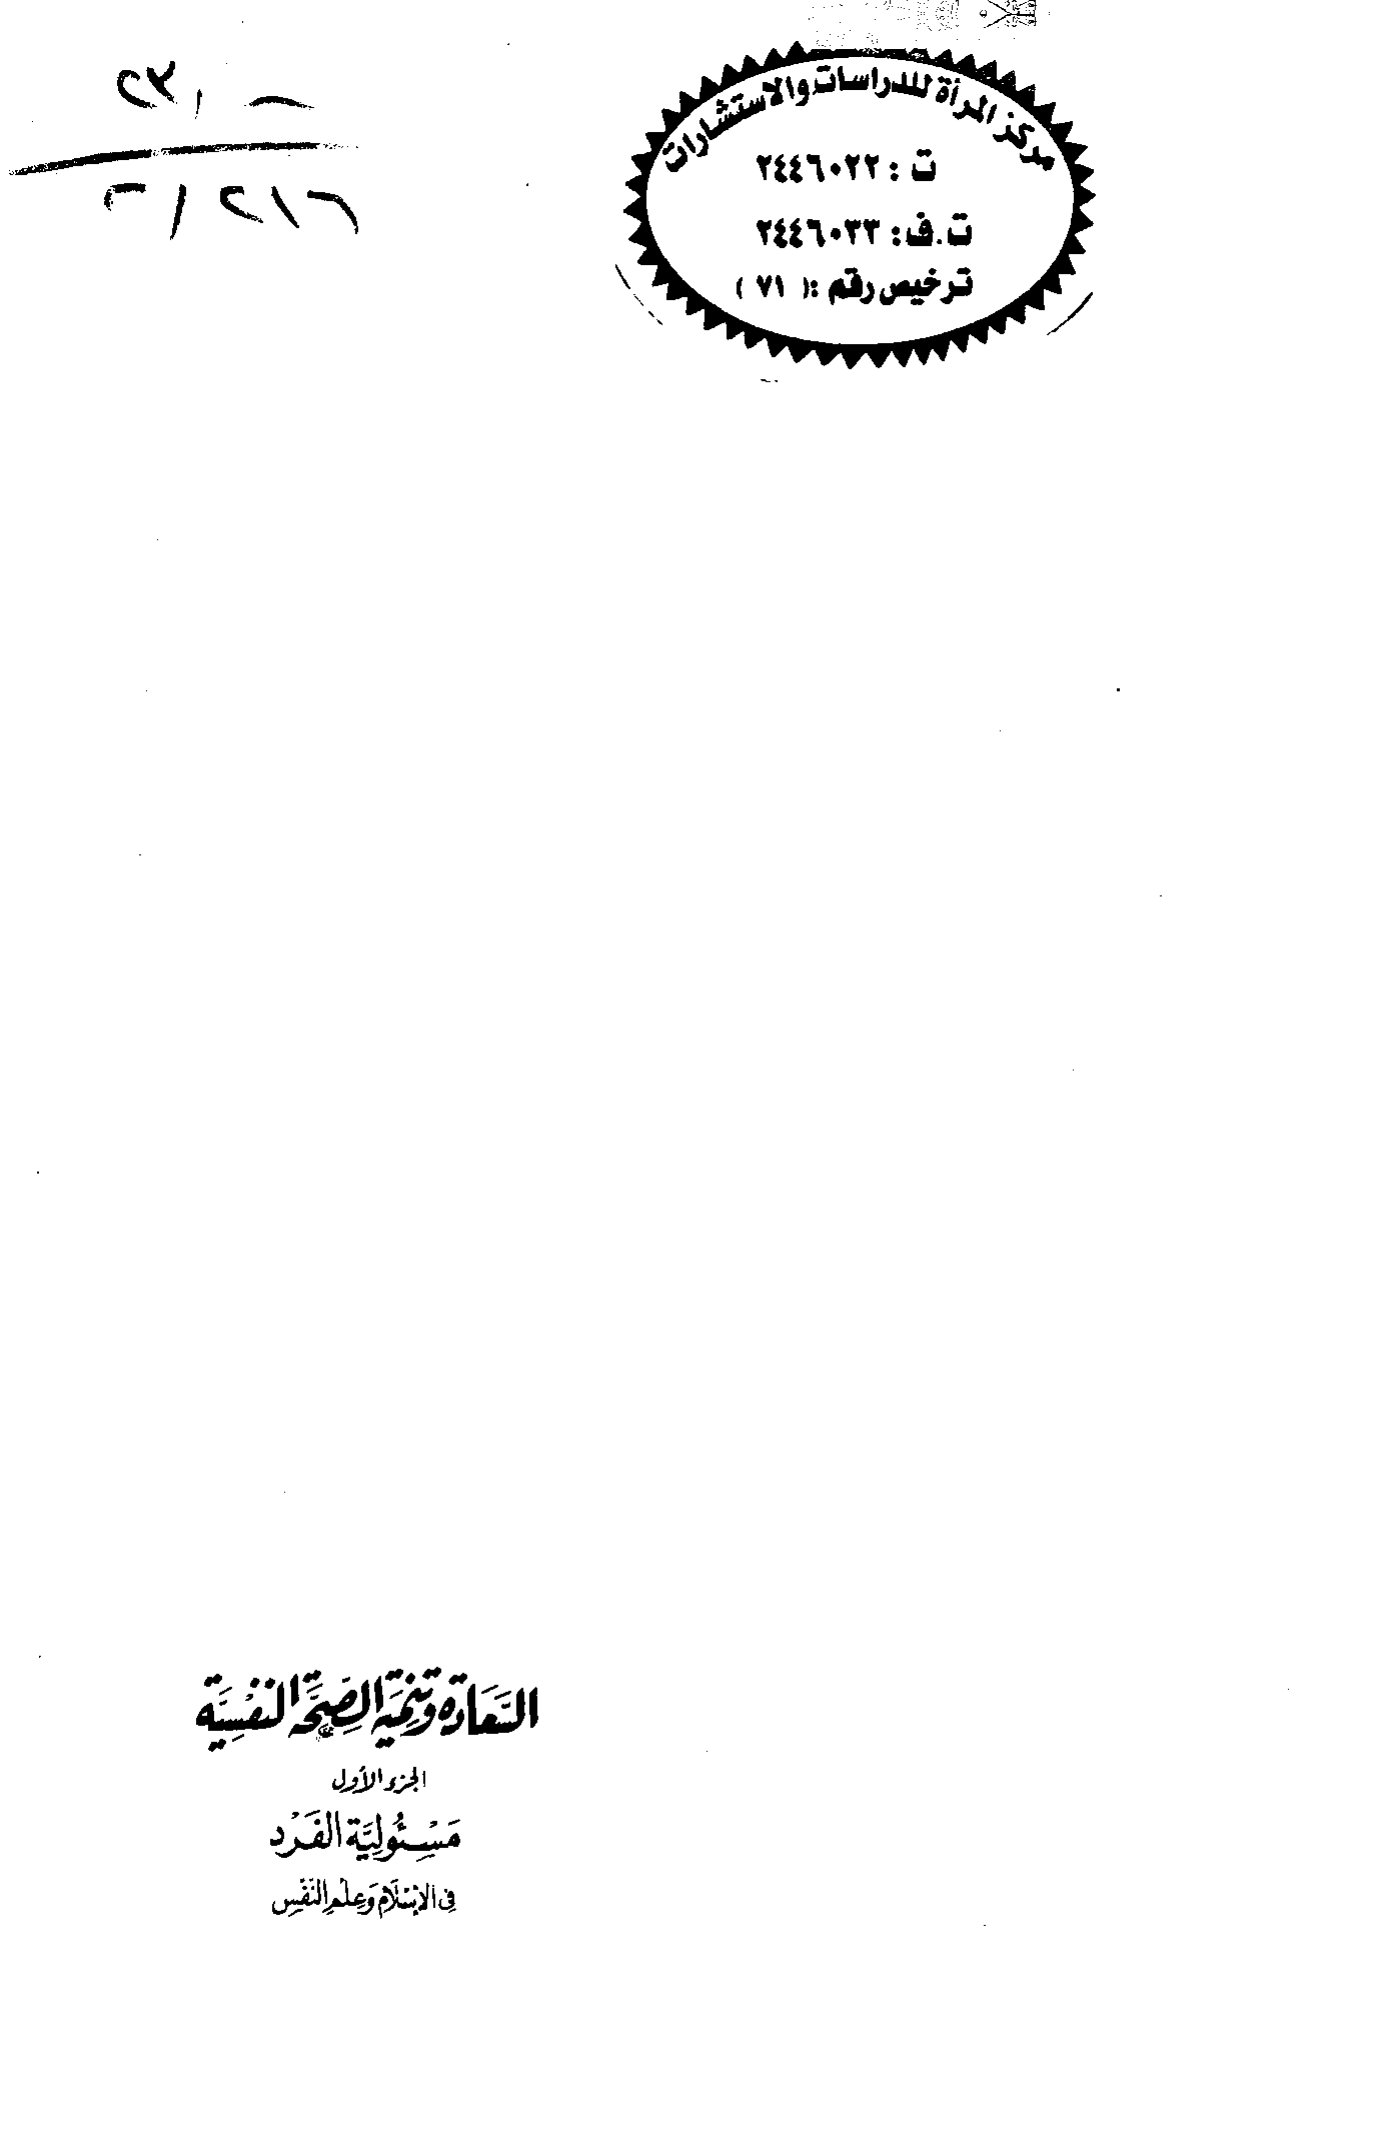 مركز المرأة للدراسات والاستشارات
ت : ٢٤٤٦٠٢٢
ت.ف: ٢٤٤٦٠٣٣
ترخيص رقم :( ٧١ )
السَّعَادَة وَتنمِيَة الصِّحَّة النَفْسِيَّة
الجزء الأول
مَسْئُولِيَّة الفَرْد
فِى الإسْلَام وَعِلْمِ النَّفْسِ